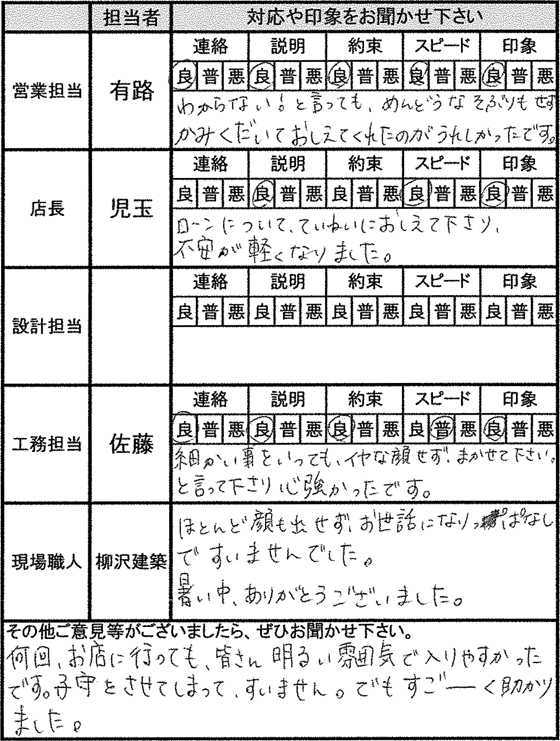 担当者 対応や印象をお聞かせ下さい
営業担当 有路
連絡 説明 約束 スピード 印象
良 普 悪 良 普 悪 良 普 悪 良 普 悪 良 普 悪
わからない!と言っても、めんどうなそぶりもせず
かみくだいておしえてくれたのがうれしかったです。
店長 児玉
連絡 説明 約束 スピード 印象
良 普 悪 良 普 悪 良 普 悪 良 普 悪 良 普 悪
ローンについて、ていねいにおしえて下さり、
不安が軽くなりました。
設計担当
連絡 説明 約束 スピード 印象
良 普 悪 良 普 悪 良 普 悪 良 普 悪 良 普 悪
工務担当 佐藤
連絡 説明 約束 スピード 印象
良 普 悪 良 普 悪 良 普 悪 良 普 悪 良 普 悪
細かい事をいっても、イヤな顔せず、まかせて下さい。
と言って下さり心強かったです。
現場職人 柳沢建築
ほとんど顔も出せず、お世話になりっぱなし
ですいませんでした。
暑い中、ありがとうございました。
その他ご意見等がございましたら、ぜひお聞かせ下さい。
何回、お店に行っても、皆さん明るい雰囲気で入りやすかった
です。子守をさせてしまって、すいません。でもすごーく助かり
ました。